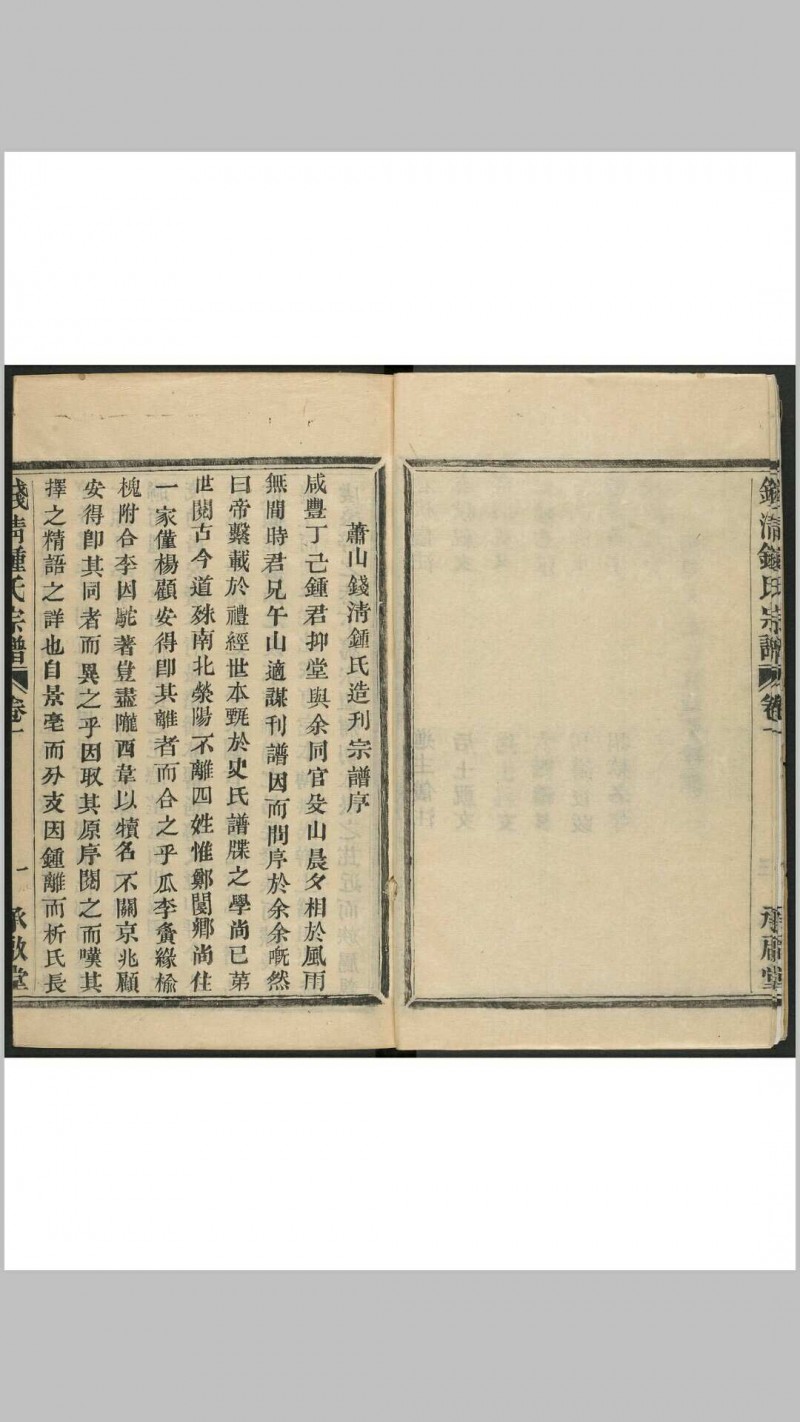 錢清鍾氏宗譜 卷一 承啟堂
蕭山錢淸鍾氏造刊宗譜序
咸豐丁己鍾君抑堂與余同官殳山晨夕相於風雨
無間時君兄午山適謀刊譜因而問序於余余嘅然
曰帝繫載於禮經世本甄於史氏譜牒之學尚已第
世閱古今道殊南北滎陽不離四姓惟鄭閿鄉尚住
一家僅楊顧安得卽其離者而合之乎瓜李夤緣榆
槐附合李因駝著豈盡隴西韋以犢名不關京兆顧
安得卽其同者而異之乎因取其原序閱之而嘆其
擇之精語之詳也自景亳而分支因鍾離而析氏長
錢淸鍾氏宗譜 卷一 一 承啟堂